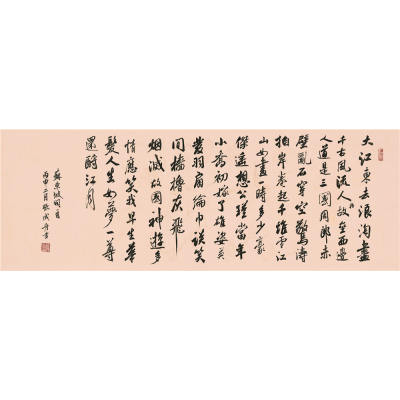 大江東去浪淘盡
千古風流人故壘西邊
人道是三國周郎赤
壁亂石穿空驚濤
拍岸卷起千堆雪江
山如畫一時多少豪
傑遙想公瑾當年
小喬初嫁了雄姿英
發羽扇綸巾談笑
間檣櫓灰飛
烟滅故國神遊多
情應笑我早生華
髮人生如夢一尊
還酹江月
蘇東坡詞一首
丙申二月張成舟書